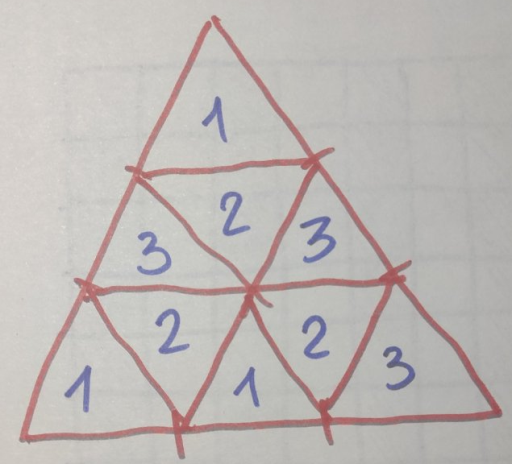 1
3 2 3
1 2 1 2 3